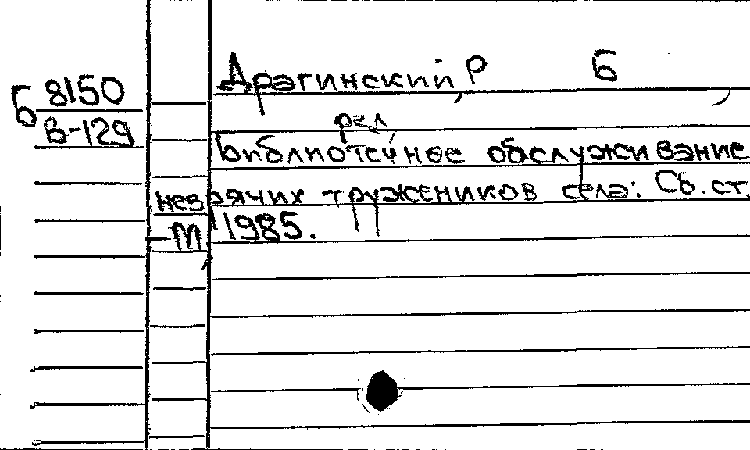 Б 8150
В-129
Драгинский, Р Б
ред,
Библиотечное обслуживание
незрячих тружеников села: Сб. ст.
-М, 1985.